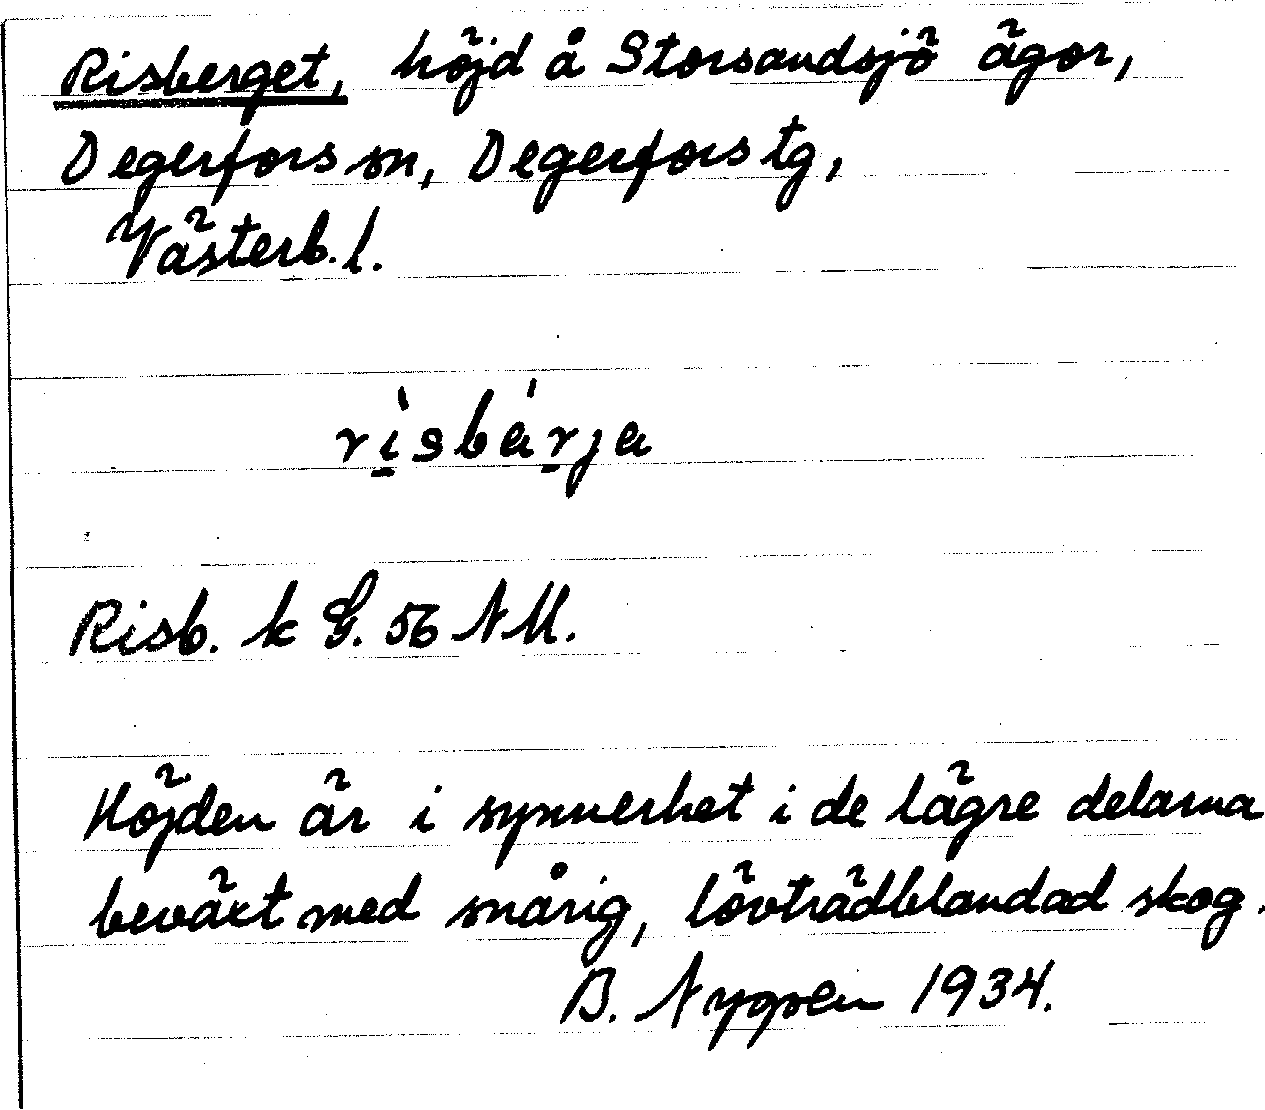 Risberget, höjd å Storsandsjö ägor,
Degerfors sn, Degerfors tg,
Västerb. l.
rìsbárja
Risb. k G. 56 NM.
Höjden är i synnerhet i de lägre delarna
beväxt med snårig, lövträdblandad skog.
B. Nygren 1934.